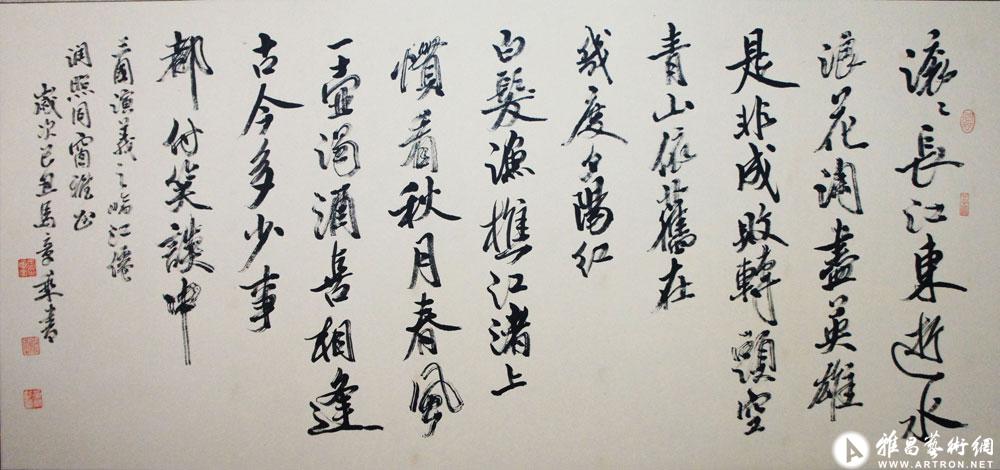 滾〻長江東逝水
浪花淘盡英雄
是非成敗轉頭空
青山依舊在
幾度夕陽紅
白髮漁樵江渚上
慣看秋月春風
一壺濁酒喜相逢
古今多少事
都付笑談中
三國演義之臨江僊
潤照同窗雅正
歲次己丑馬章乘書
雅昌藝術網
WWW.ARTRON.NET